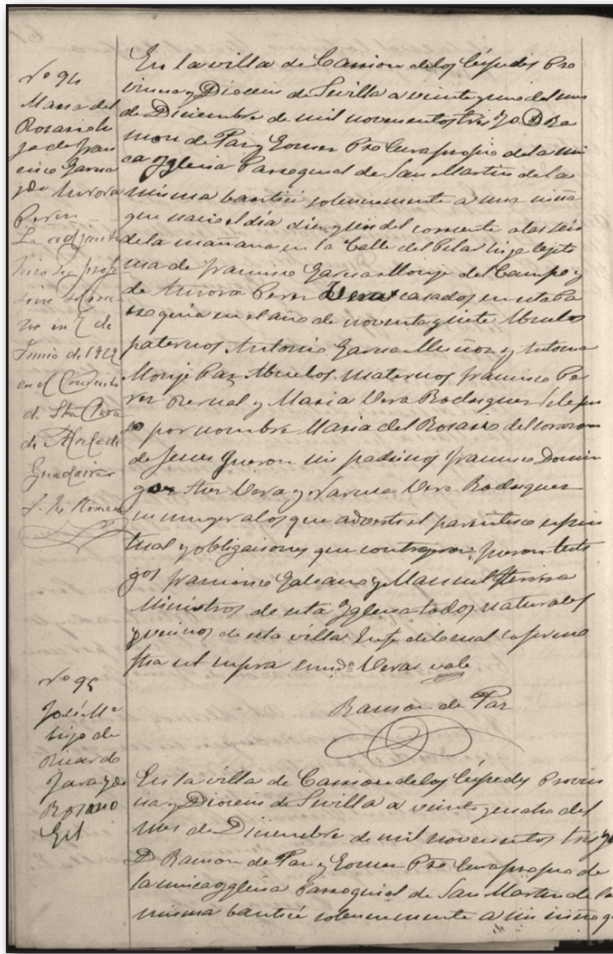 Nº 94
Maria del
Rosario hi
ja de Fran
cisco Garcia
y de Aurora
Perez
La adjunta
hizo su profe
sion solem
ne en 2 de
Junio de 1922
en el Convento
de Sta Clara
de Alcala de
Guadaira
En la villa de Carrion de los Cespedes Pro
vincia y Diocesis de Sevilla a veinte y uno del mes
de Diciembre de mil novecientos tres Yo D Ra
mon de Paz y Gomez Pro Cura propio de la uni
ca Yglesia Parroquial de San Martin de la
misma bauticé solemnemente a una niña
que nacio el dia diez y seis del corriente a las seis
de la mañana en la Calle del Pilar hija legiti
ma de Francisco Garcia Monje del Campo y
de Aurora Perez Vera casados en esta Pa
rroquia en el año de noventa y siete Abuelos
paternos Antonio Garcia Muñoz y Antonia
Monje Paz Abuelos maternos Francisco Pe
rez Bernal y Maria Vera Rodriguez Se le pu
so por nombre Maria del Rosario del Corazon
de Jesus fueron sus padrinos Francisco Domin
guez Vera y Vera Rodriguez
su muger a los que adverti el parentesco espiri
tual y obligaciones que contrageron fueron testi
gos Francisco Galeano y Manuel
Ministros de esta Yglesia todos naturales
y vecinos de esta villa En fe de lo cual lo firmo
fha ut supra Vera vale
Ramon de Paz
Nº 95
José Mª
hijo de
Ricardo
Garay de
Rosario
Gil
En la villa de Carrion de los Cespedes Provin
cia y Diocesis de Sevilla a veinte y cuatro del
mes de Diciembre de mil novecientos tres Yo
D Ramon de Paz y Gomez Pro Cura propio de
la unica Yglesia Parroquial de San Martin de la
misma bauticé solemnemente a un niño q